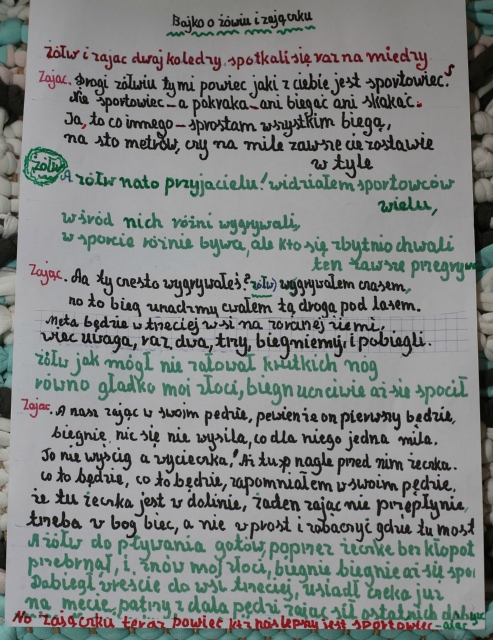 Bajko o żówiu i zajączku
żółw i zając dwaj koledzy spotkali się raz na miedzy
Zając. Drogi żółwiu ty mi powiec jaki z ciebie jest sportowiec?
Nie sportowiec – a pokraka – ani biegać ani skakać.
Ja, to co innego – sprostam wszystkim biegą,
na sto metrów, czy na mile zawsze cie zostawie
w tyle
żółw
A żółw nato przyjacielu! widziałem sportowców
wielu,
wśród nich różni wygrywali,
w sporcie różnie bywa, ale kto się zbytnio chwali
ten zawsze przegrywa
Zając. Aa ty często wygrywałeś? żółw) wygrywałem czasem,
no to bieg urządzmy cwałem tą drogą pod lasem.
Meta będzie w trzeciej wsi na zoranej ziemi,
wiec uwaga, raz, dwa, trzy, biegniemy, i pobiegli.
żółw jak mógł nie żałował krótkich nog
równo gładko moi złoci, biegn uczciwie aż się spocił
Zając. A nasz zając w swoim pędzie, pewien że on pierwszy będzie,
biegnie nic się nie wysila, co dla niego jedna mila.
To nie wyścig a wycieczka, Aż tu nagle przed nim żeczka.
co to będzie, co to będzie, zapomniałem w swoim pędzie,
że tu żeczka jest w dolinie, żaden zając nie przepłynie,
trzeba w bog biec, a nie w prost i zobaczyć gdzie tu most
A żółw do pływania gotów, poprzez żeczke bez kłopot
przebrnął, i znów moi złoci, biegnie biegnie aż się spoci
Dabiegł wreście do wsi trzeciej, usiadł czeka już
na mecie, patrzy z dala pędzi zając sił ostatnich
No zajączku teraz powiec kto następny jest sportowiec